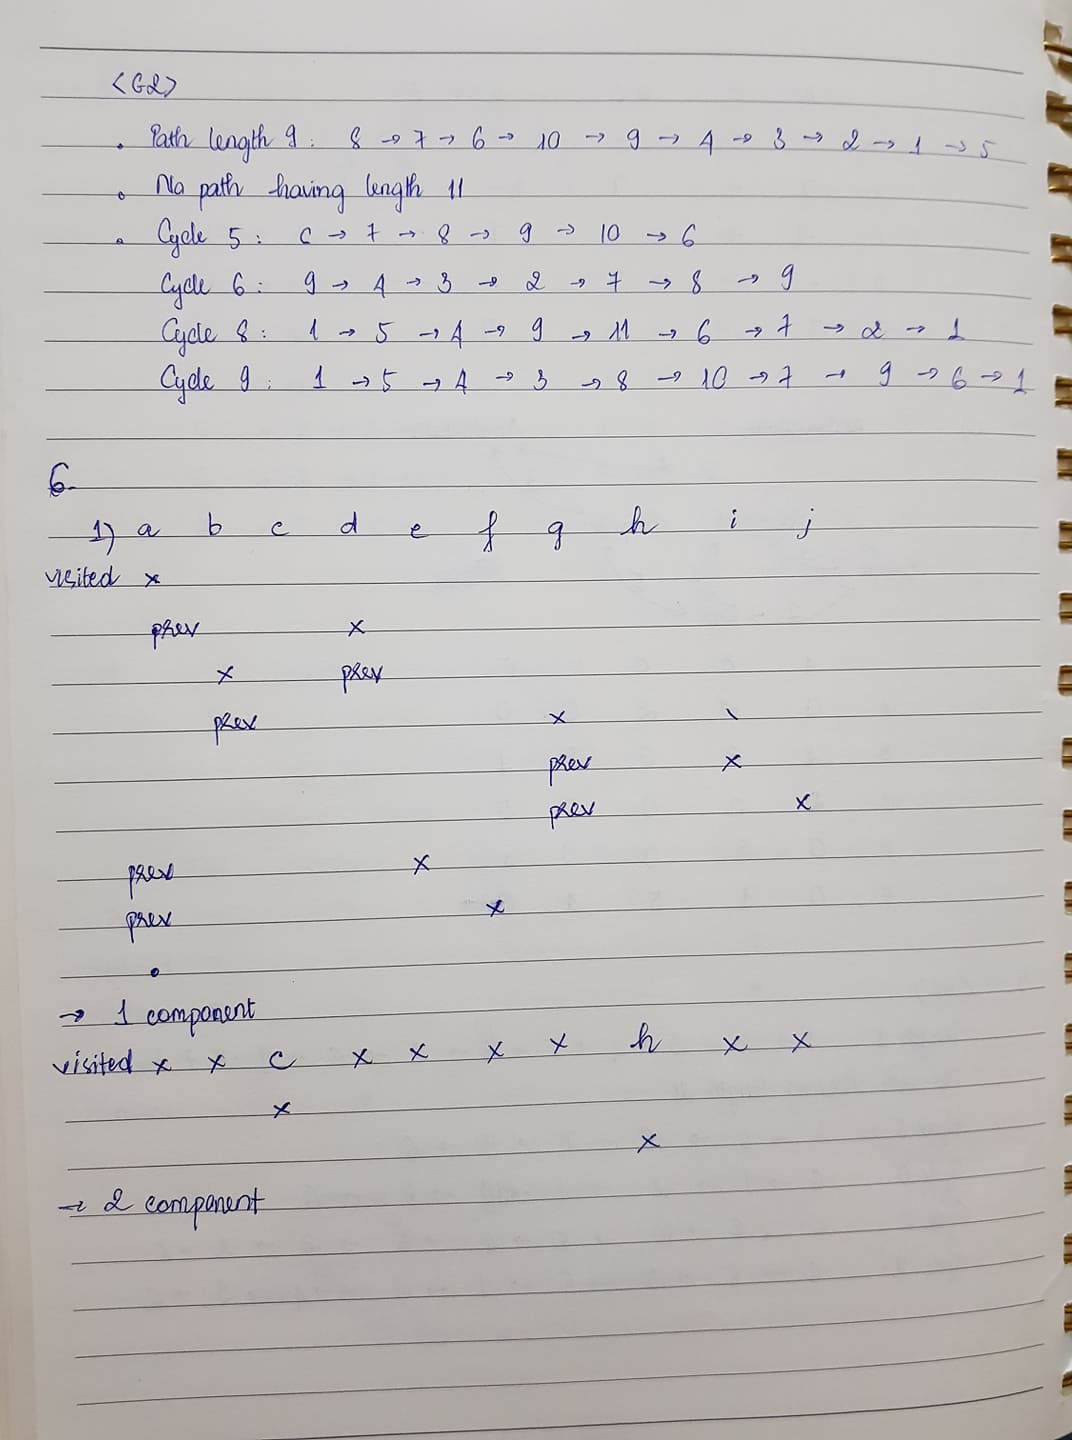 <G2>
• Path length 9: 8 → 7 → 6 → 10 → 9 → 4 → 3 → 2 → 1 → 5
• No path having length 11
• Cycle 5: 6 → 7 → 8 → 9 → 10 → 6
Cycle 6: 9 → 4 → 3 → 2 → 7 → 8 → 9
Cycle 8: 1 → 5 → 4 → 9 → 11 → 6 → 7 → 2 → 1
Cycle 9: 1 → 5 → 4 → 3 → 8 → 10 → 7 → 9 → 6 → 1
6.
1) a b c d e f g h i j
visited x
prev x
x prev
prev x \
prev x
prev x
prev x
prev x
•
→ 1 component
visited x x c x x x x h x x
x
x
→ 2 component